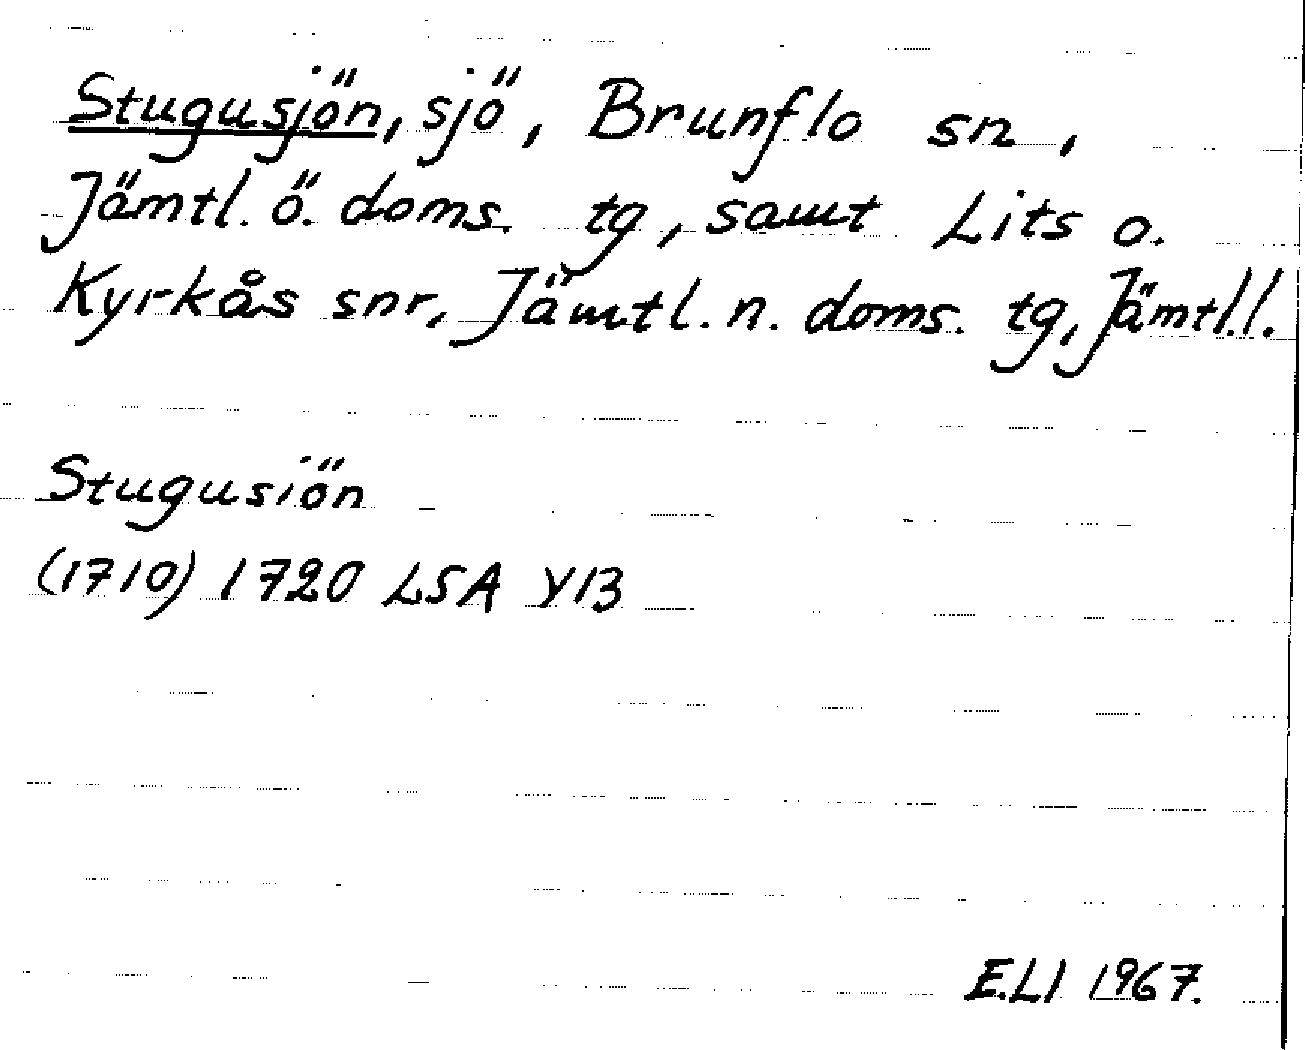 Stugusjön, sjö, Brunflo sn,
Jämtl. ö. doms. tg, samt Lits o.
Kyrkås snr, Jämtl. n. doms. tg, Jämtl.l.
Stugusiön
(1710) 1720 LSA Y13
E.LI 1967.